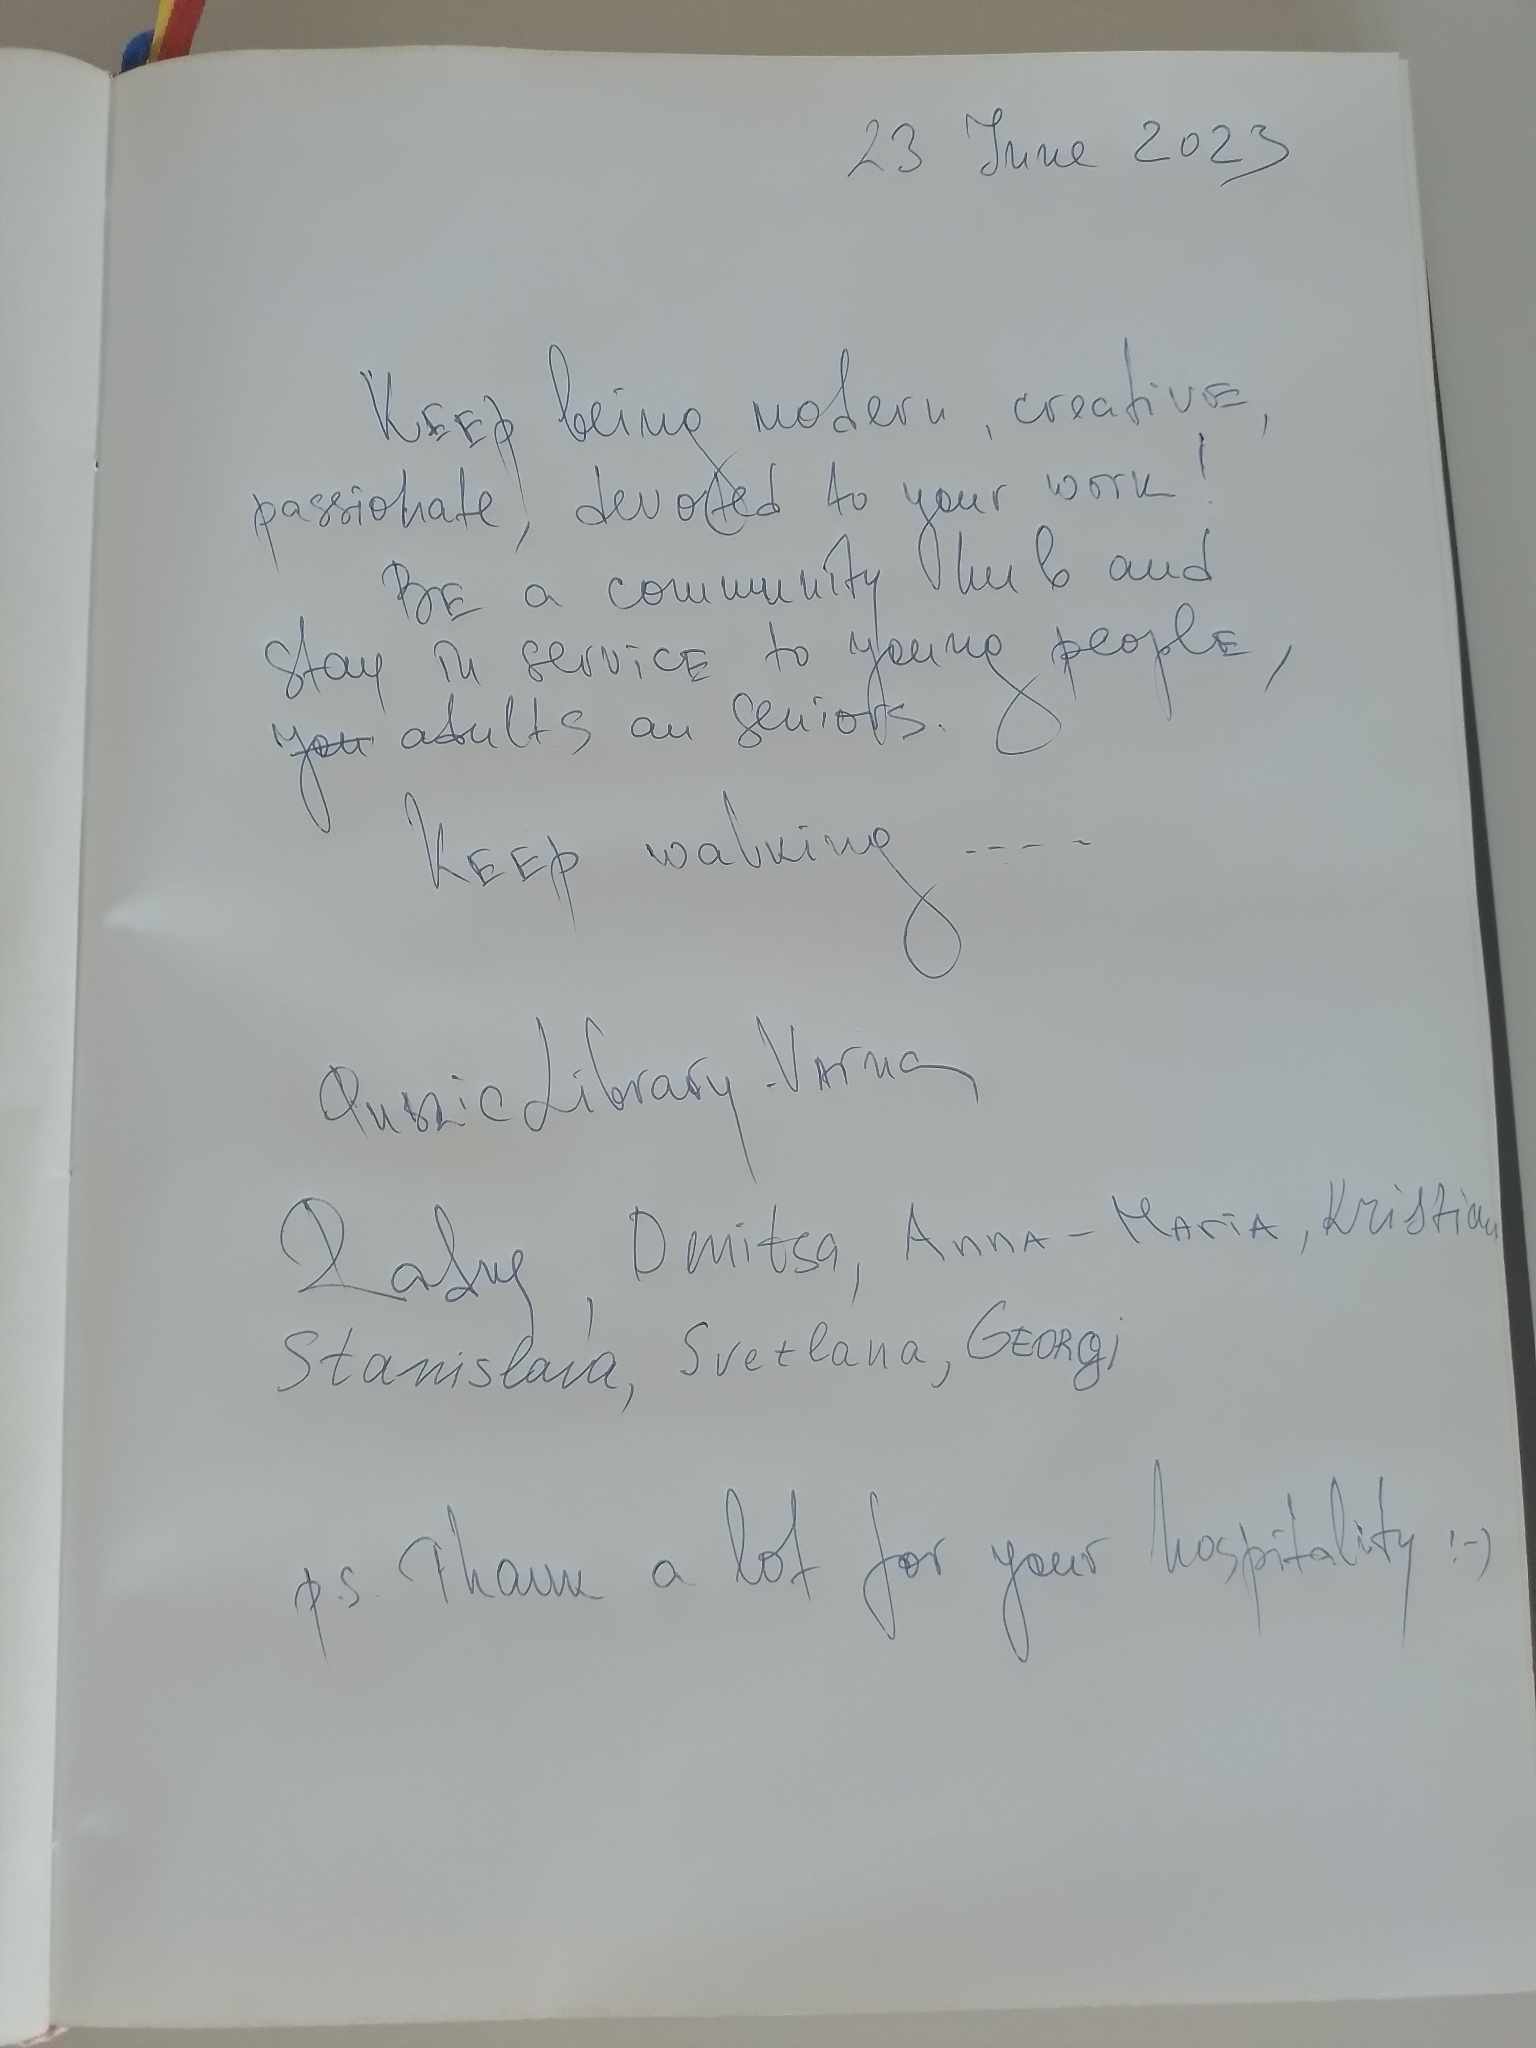 23 June 2023
KEEP being modern, creative,
passionate, devoted to your work!
BE a community hub and
stay in service to young people,
you adults an seniors.
KEEP walking ----
Public Library-Varna
Dmitsa, Anna-Maria, Kristian
Stanislava, Svetlana, GEORgi
ps. Thank a lot for your hospitality :-)